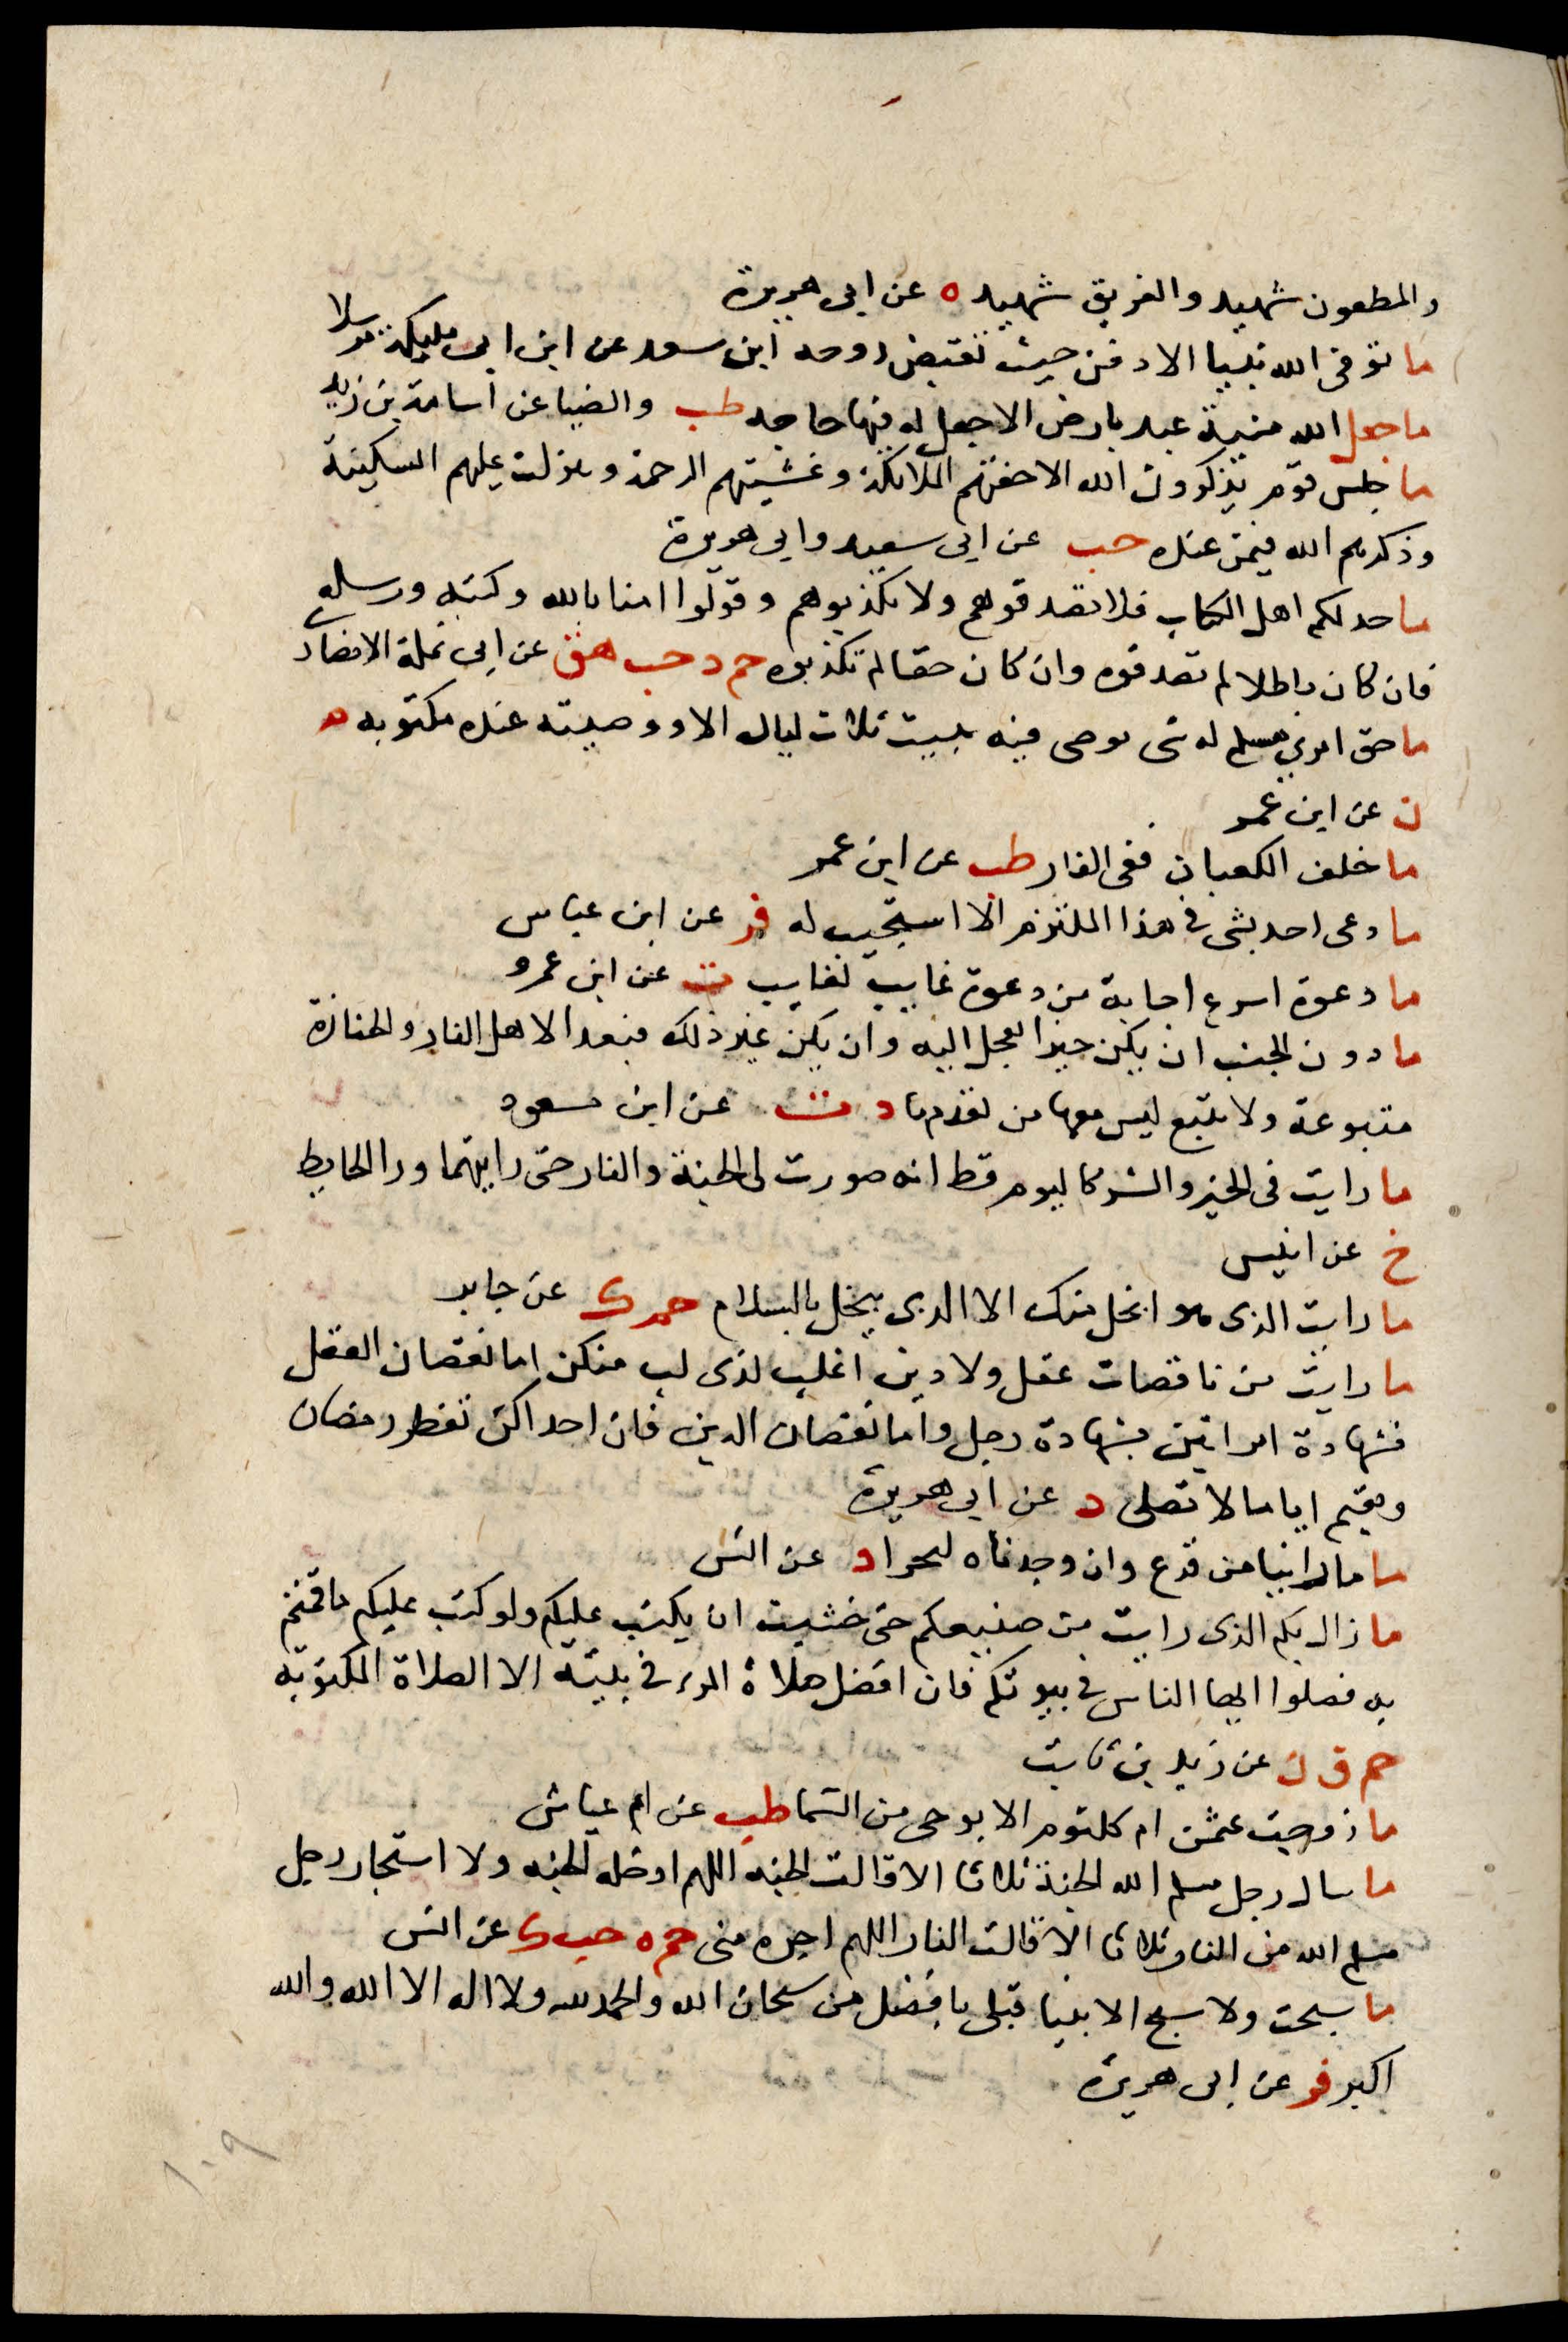 والمطعون شهيد والغريق شهيد ه عن ابى هريرة
ما توفى الله نبيا الا دفن حيث تقبض روحه ابن سعد عن ابن ابى مليكة مرسلا
ما جعل الله منية عبد بارض الا جعل له فيها حاجه طب والضيا عن اسامة بن زيد
ما جلس قوم يذكرون الله الا حفتهم الملائكة وغشيتهم الرحمة ونزلت عليهم السكينة
وذكرهم الله فيمن عنده حب عن ابى سعيد وابى هريرة
ما حدثكم اهل الكتاب فلا تصدقوهم ولا تكذبوهم وقولوا امنا بالله وكتبه ورسله
فان كان باطلا لم تصدقوه وان كان حقا لم تكذبوه حم د حب هق عن ابى نملة الانصار
ما حق امرئ مسلم له شى يوصى فيه يبيت ثلاث ليال الا ووصيته عنده مكتوبه م
ن عن ابن عمر
ما خلف الكعبان ففى النار طب عن ابن عمر
ما دعى احد بشى فى هذا الملتزم الا استجيب له فر عن ابن عباس
ما دعوة اسرع اجابة من دعوة غايب لغايب ت عن ابن عمرو
ما دون الخبب ان يكن خيرا تعجل اليه وان يكن غير ذلك فبعدا لاهل النار والجنازة
متبوعة ولا تتبع ليس معها من تقدمها د ت عن ابن مسعود
ما رايت فى الخير والشر كاليوم قط انه صورت لى الجنة والنار حتى رايتهما ورا الحايط
خ عن انيس
ما رايت الذى هو ابخل منك الا الذى يبخل بالسلام حم ك عن جابر
ما رايت من ناقصات عقل ولا دين اغلب لذى لب منكن اما نقصان العقل
فشهادة امراتين بشهادة رجل واما نقصان الدين فان احداكن تفطر رمضان
وتقيم اياما لا تصلى د عن ابى هريرة
ما ما راينا من فزع وان وجدناه لبحرا د عن انس
ما زال بكم الذى رايت من صنيعكم حتى خشيت ان يكتب عليكم ولو كتب عليكم ما قمتم
به فصلوا ايها الناس فى بيوتكم فان افضل صلاة المرء فى بيته الا الصلاة المكتوبه
حم ق ن عن زيد بن ثابت
ما زوجت عثمن ام كلثوم الا بوحى من السما طب عن ام عياش
ما سال رجل مسلم الله الجنة ثلاثا الا قالت الجنه اللهم ادخله الجنه ولا استجار رجل
مسلم الله من النار ثلاثا الا قالت النار اللهم اجره منى حم ه حب ك عن انس
ما سبحت ولا سبح الانبيا قبلى بافضل من سبحان الله والحمد لله ولا اله الا الله والله
اكبر فر عن ابى هريرة
١٠٩